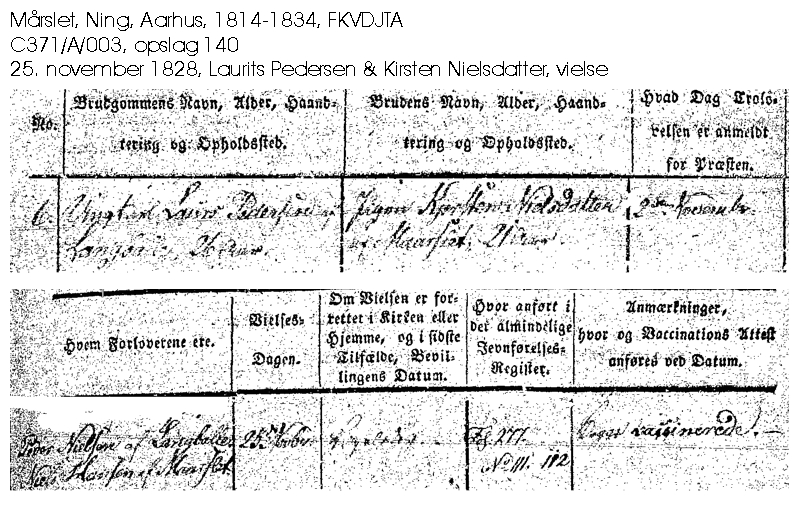 Mårslet, Ning, Aarhus, 1814-1834, FKVDJTA
C371/A/003, opslag 140
25. november 1828, Laurits Pedersen & Kirsten Nielsdatter, vielse
No.
Brudgommens Navn, Alder, Haand-
tering og Opholdssted.
Brudens Navn, Alder, Haand-
tering og Opholdssted.
Hvad Dag Trolo-
velsen er anmeldt
for Præsten.
6. Ungkarl Laurs Pedersen
26 Aar.
Pigen Kirsten Nielsdatter
af Maarslet, 21 Aar.
2den November
Hvem Forloverene ere.
Vielses-
Dagen.
Om Vielsen er for-
rettet i Kirken eller
Hjemme, og i sidste
Tilfælde, Bevil-
lingens Datum.
Hvor anført i
det almindelige
Jevnførelses-
Register.
Anmærkninger,
hvor og Vaccinations Attest
anføres ved Datum.
Nielsen af Langballe
Hansen af Maarslet
25
Fol 277.
No 111. 112
vaccinerede.